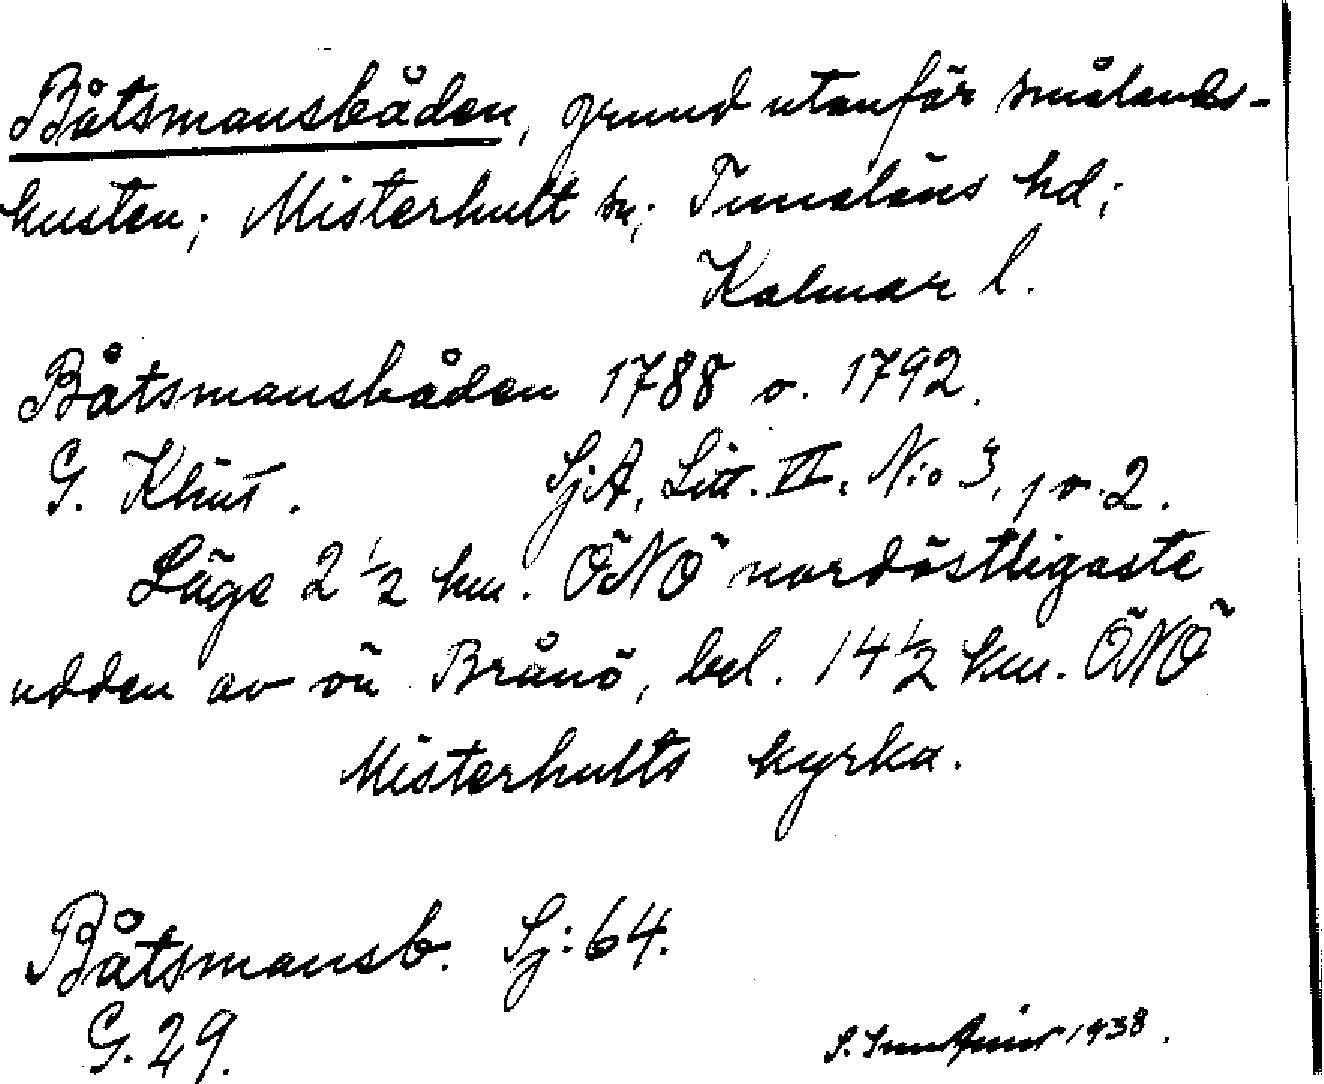 Båtsmansbåden, grund utanför smålands-
kusten; Misterhult sn; Tunaläns hd;
Kalmar l.
Båtsmansbåden 1788 o. 1792.
G. Klint. SjA, Litt. VI. N:o 3, 1 o. 2.
Läge 2 1/2 km. ÖNÖ nordöstligaste
udden av ön Brånö, bel. 14 1/2 km. ÖNÖ
Misterhults kyrka.
Båtsmansb. Sj: 64.
G. 29.
1938.